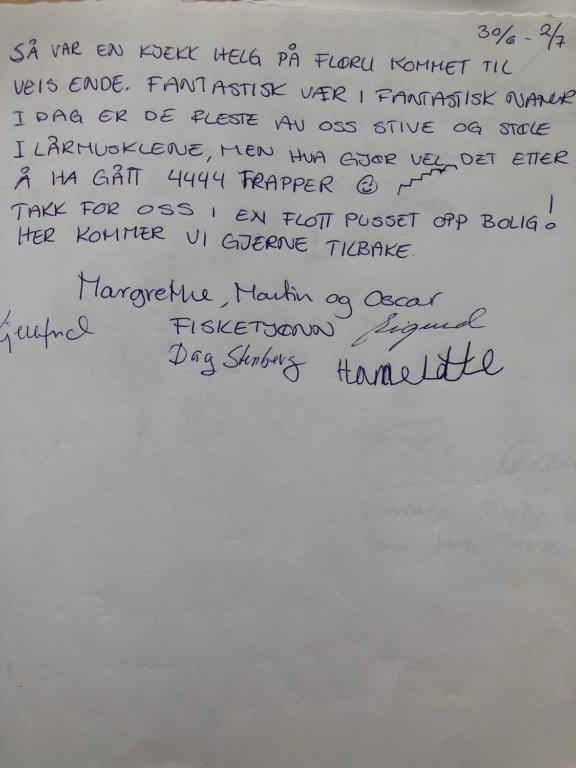 30/6 - 2/7
SÅ VAR EN KJEKK HELG PÅ FLØRLI KOMMET TIL
VEIS ENDE. FANTASTISK VÆR I FANTASTISK NATUR
I DAG ER DE FLESTE AV OSS STIVE OG STØLE
I LÅRMUSKLENE, MEN HVA GJØR VEL DET ETTER
Å HA GÅTT 4444 TRAPPER
TAKK FOR OSS I EN FLOTT PUSSET OPP BOLIG!
HER KOMMER VI GJERNE TILBAKE.
Margrethe, Martin og Oscar
FISKETJØNN Sigurd
Dag Stenberg